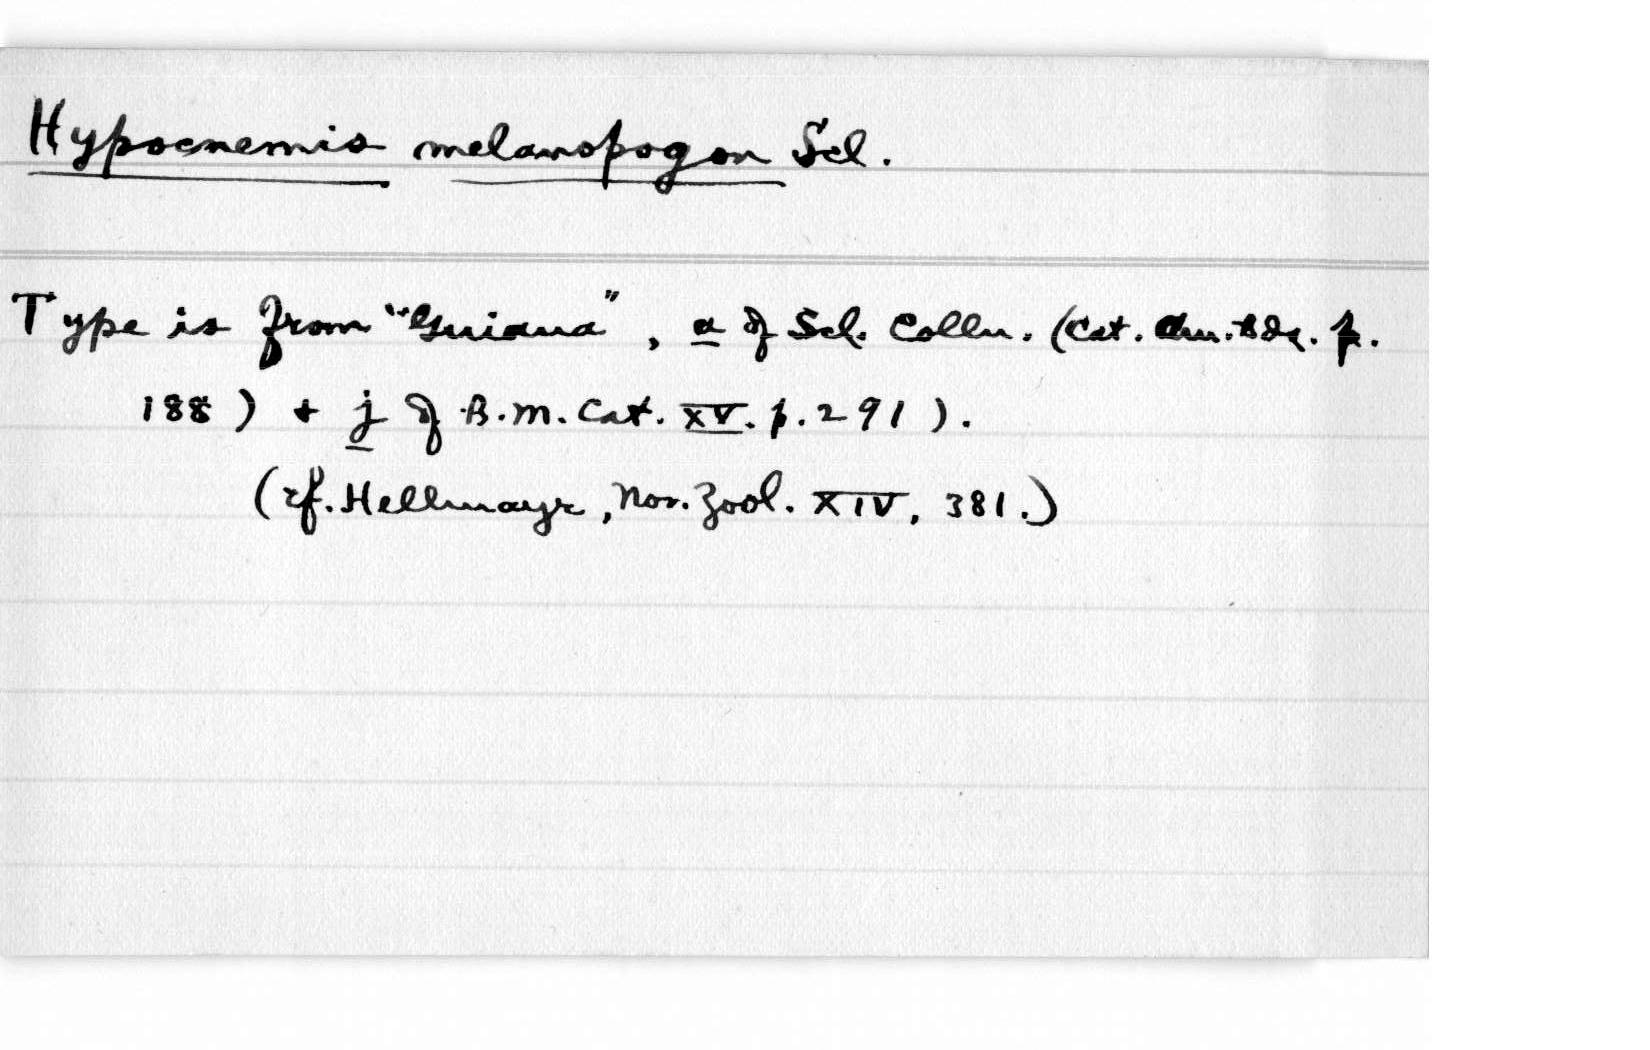 Hypocnemis melanopogon Scl.
Type is from "Guiana", a of Scl. Colln. (Cat. Am. Bds. p.
188) + j of B.M. Cat. XV. p. 291).
(cf. Hellmayr, Nov. Zool. XIV, 381.)